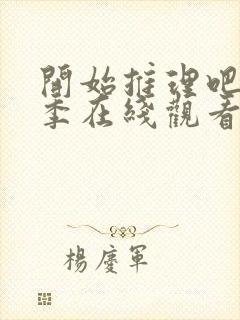 開始推理吧
季在綫觀看
楊慶軍